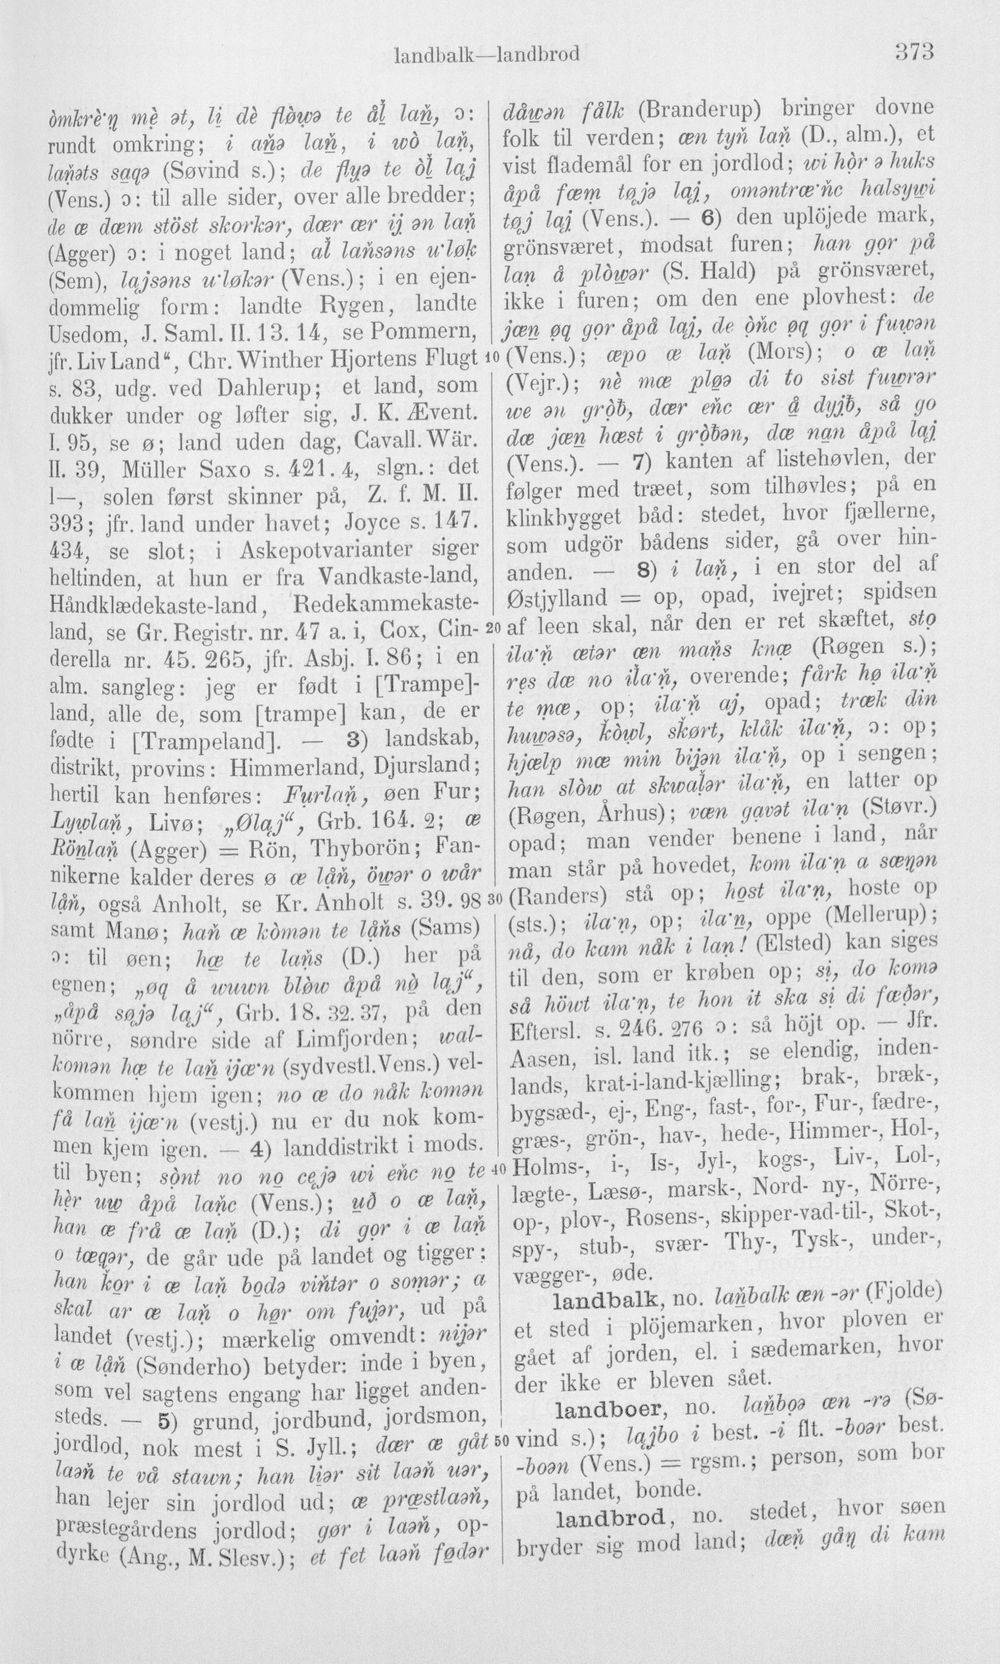 landbalk—landbrod 373
òmkrè·ŋ mè ət, li dè fløwə te ål lań, ɔ:
rundt omkring; i ańə lań, i wò lań,
lańəts saqə (Søvind s.); de flyə te òl laj
(Vens.) ɔ: til alle sider, over alle bredder;
de æ dæm stöst skorkər, dær ær ij ən lań
(Agger) ɔ: i noget land; al lańsəns u·løk
(Sem), lajsəns u·løkər (Vens.); i en ejen-
dommelig form: landte Rygen, landte
Usedom, J. Saml. II. 13. 14, se Pommern,
jfr. Liv Land“, Chr. Winther Hjortens Flugt
s. 83, udg. ved Dahlerup; et land, som
dukker under og løfter sig, J. K. Ævent.
I. 95, se ø; land uden dag, Cavall. Wär.
II. 39, Müller Saxo s. 421. 4, slgn.: det
l—, solen først skinner på, Z. f. M. II.
393; jfr. land under havet; Joyce s. 147.
434, se slot; i Askepotvarianter siger
heltinden, at hun er fra Vandkaste-land,
Håndklædekaste-land, Redekammekaste-
land, se Gr. Registr. nr. 47 a. i, Cox, Cin-
derella nr. 45. 265, jfr. Asbj. I. 86; i en
alm. sangleg: jeg er født i [Trampe]-
land, alle de, som [trampe] kan, de er
fødte i [Trampeland]. — 3) landskab,
distrikt, provins: Himmerland, Djursland;
hertil kan henføres: Furlań, øen Fur;
Lywlań, Livø; „Ølaj“, Grb. 164. 2; æ
Rönlań (Agger) = Rön, Thyborön; Fan-
nikerne kalder deres ø æ låń, öwər o wår
låń, også Anholt, se Kr. Anholt s. 39. 98
samt Manø; hań æ kòmən te låńs (Sams)
ɔ: til øen; hæ te lańs (D.) her på
egnen; „øq å wuwn blòw åpå nò laj“,
„åpå søjə laj“, Grb. 18. 32. 37, på den
nörre, søndre side af Limfjorden; wal-
komən hæ te lań ijæ·n (sydvestl. Vens.) vel-
kommen hjem igen; no æ do nåk komən
få lań ijæ·n (vestj.) nu er du nok kom-
men kjem igen. — 4) landdistrikt i mods.
til byen; sònt no no cejə wi eńc no te
hèr uw åpå lańc (Vens.); uð o æ lań,
han æ frå æ lań (D.); di gor i æ lań
o tæqər, de går ude på landet og tigger;
han kor i æ lań bodə vińtər o somər; a
skal ar æ lań o hør om fujər, ud på
landet (vestj.); mærkelig omvendt: nijər
i æ låń (Sønderho) betyder: inde i byen,
som vel sagtens engang har ligget anden-
steds. — 5) grund, jordbund, jordsmon,
jordlod, nok mest i S. Jyll.; dær æ gåt
laəń te vå stawn; han liər sit laəń uər,
han lejer sin jordlod ud; æ præstlaəń,
præstegårdens jordlod; gør i laəń, op-
dyrke (Ang., M. Slesv.); et fet laəń fødər
dåwən fålk (Branderup) bringer dovne
folk til verden; æn tyń lań (D., alm.), et
vist flademål for en jordlod; wi hòr ə huks
åpå fæm tøjə laj, oməntræ·ńc halsywi
tøj laj (Vens.). — 6) den uplöjede mark,
grönsværet, modsat furen; han gor på
lan å plòwər (S. Hald) på grönsværet,
ikke i furen; om den ene plovhest: de
jæn øq gor åpå laj, de òńc øq gor i fuwən
10 (Vens.); æpo æ lań (Mors); o æ lań
(Vejr.); nè mæ pløə di to sist fuwrər
we ən gròb, dær eńc ær å dyjb, så go
dæ jæn hæst i gròbən, dæ nan åpå laj
(Vens.). — 7) kanten af listehøvlen, der
følger med træet, som tilhøvles; på en
klinkbygget båd: stedet, hvor fjællerne,
som udgör bådens sider, gå over hin-
anden. — 8) i lań, i en stor del af
Østjylland = op, opad, ivejret; spidsen
20 af leen skal, når den er ret skæftet, sto
ila·ń ætər æn mańs knæ (Røgen s.);
res dæ no ila·ń, overende; fårk hø ila·ń
te mæ, op; ila·ń aj, opad; træk din
huwəsə, kòwl, skørt, klåk ila·ń, ɔ: op;
hjælp mæ min bijən ila·ń, op i sengen;
han slòw at skwalər ila·ń, en latter op
(Røgen, Århus); væn gavət ila·n (Støvr.)
opad; man vender benene i land, når
man står på hovedet, kom ila·n a sæŋən
30 (Randers) stå op; host ila·n, hoste op
(sts.); ila·n, op; ila·n, oppe (Mellerup);
nå, do kam nåk i lan! (Elsted) kan siges
til den, som er krøben op; si, do komə
så höwt ila·n, te hon it ska si di fæðər,
Eftersl. s. 246. 276 ɔ: så höjt op. — Jfr.
Aasen, isl. land itk.; se elendig, inden-
lands, krat-i-land-kjælling; brak-, bræk-,
bygsæd-, ej-, Eng-, fast-, for-, Fur-, fædre-,
græs-, grön-, hav-, hede-, Himmer-, Hol-,
40 Holms-, i-, Is-, Jyl-, kogs-, Liv-, Lol-,
lægte-, Læsø-, marsk-, Nord- ny-, Nörre-,
op-, plov-, Rosens-, skipper-vad-til-, Skot-,
spy-, stub-, svær- Thy-, Tysk-, under-,
vægger-, øde.
landbalk, no. lańbalk æn -ər (Fjolde)
et sted i plöjemarken, hvor ploven er
gået af jorden, el. i sædemarken, hvor
der ikke er bleven sået.
landboer, no. lańboə æn -rə (Sø-
50 vind s.); lajbo i best. -i flt. -boər best.
-boən (Vens.) = rgsm.; person, som bor
på landet, bonde.
landbrod, no. stedet, hvor søen
bryder sig mod land; dæń gåŋ di kam